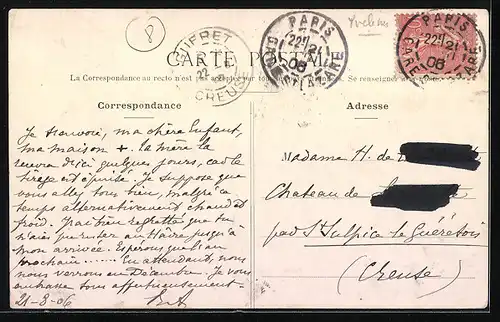 Yvelines
GUIFRET
22
CREUSE
PARIS
22H 21
06
GARE St LAZARE
PARIS
22H 21
06
GARE St LAZARE
CARTE POSTALE
La Correspondance au recto n'est pas acceptée par tous les pays étrangers. Se renseigner
Correspondance
Adresse
Je t'envoie, ma chère Enfant,
ma maison +. ta mère la
recevra d'ici quelques jours, car le
tirage est épuisé. Je suppose que
vous allez tous bien, malgré ce
temps alternativement chaud et
froid. J'ai bien regretté que tu
n'aies pu rester au Havre jusqu'à
mon arrivée. Espérons que l'an
prochain...... En attendant, nous
nous verrons en Décembre. Je vous
embrasse tous affectueusement
21-8-06
Madame H. de
Chateau de
par St Sulpice le Guéretois
(Creuse)